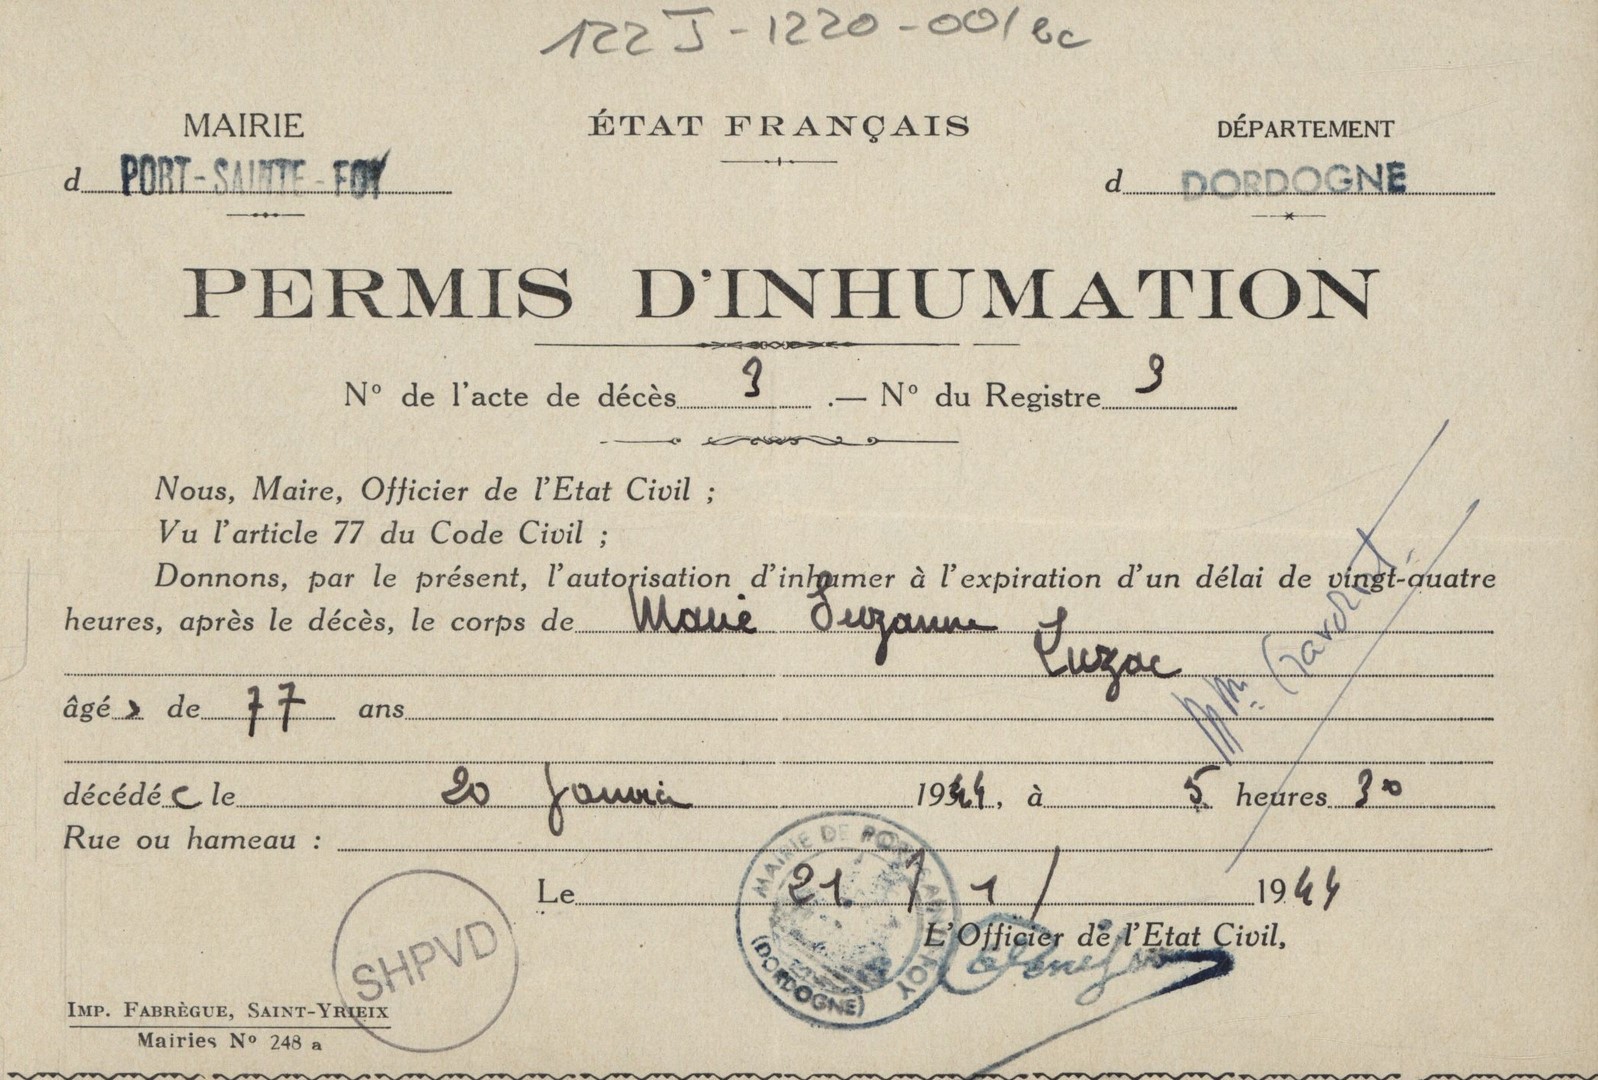 122 J - 1220 - 001 bc
MAIRIE
d PORT-SAINTE-FOY
ÉTAT FRANÇAIS
DÉPARTEMENT
d DORDOGNE
PERMIS D'INHUMATION
N° de l'acte de décès 3 .— N° du Registre 3
Nous, Maire, Officier de l'Etat Civil ;
Vu l'article 77 du Code Civil ;
Donnons, par le présent, l'autorisation d'inhumer à l'expiration d'un délai de vingt-quatre
heures, après le décès, le corps de Marie Suzanne
Luzac
Mme
âgé de 77 ans
décédée le 20 Janvier 1944, à 5 heures 30
Rue ou hameau :
Le 21 / 1 / 1944
MAIRIE DE PORT-SAINTE-FOY
(DORDOGNE)
L'Officier de l'Etat Civil,
SHPVD
IMP. FABRÈGUE, SAINT-YRIEIX
Mairies N° 248 a